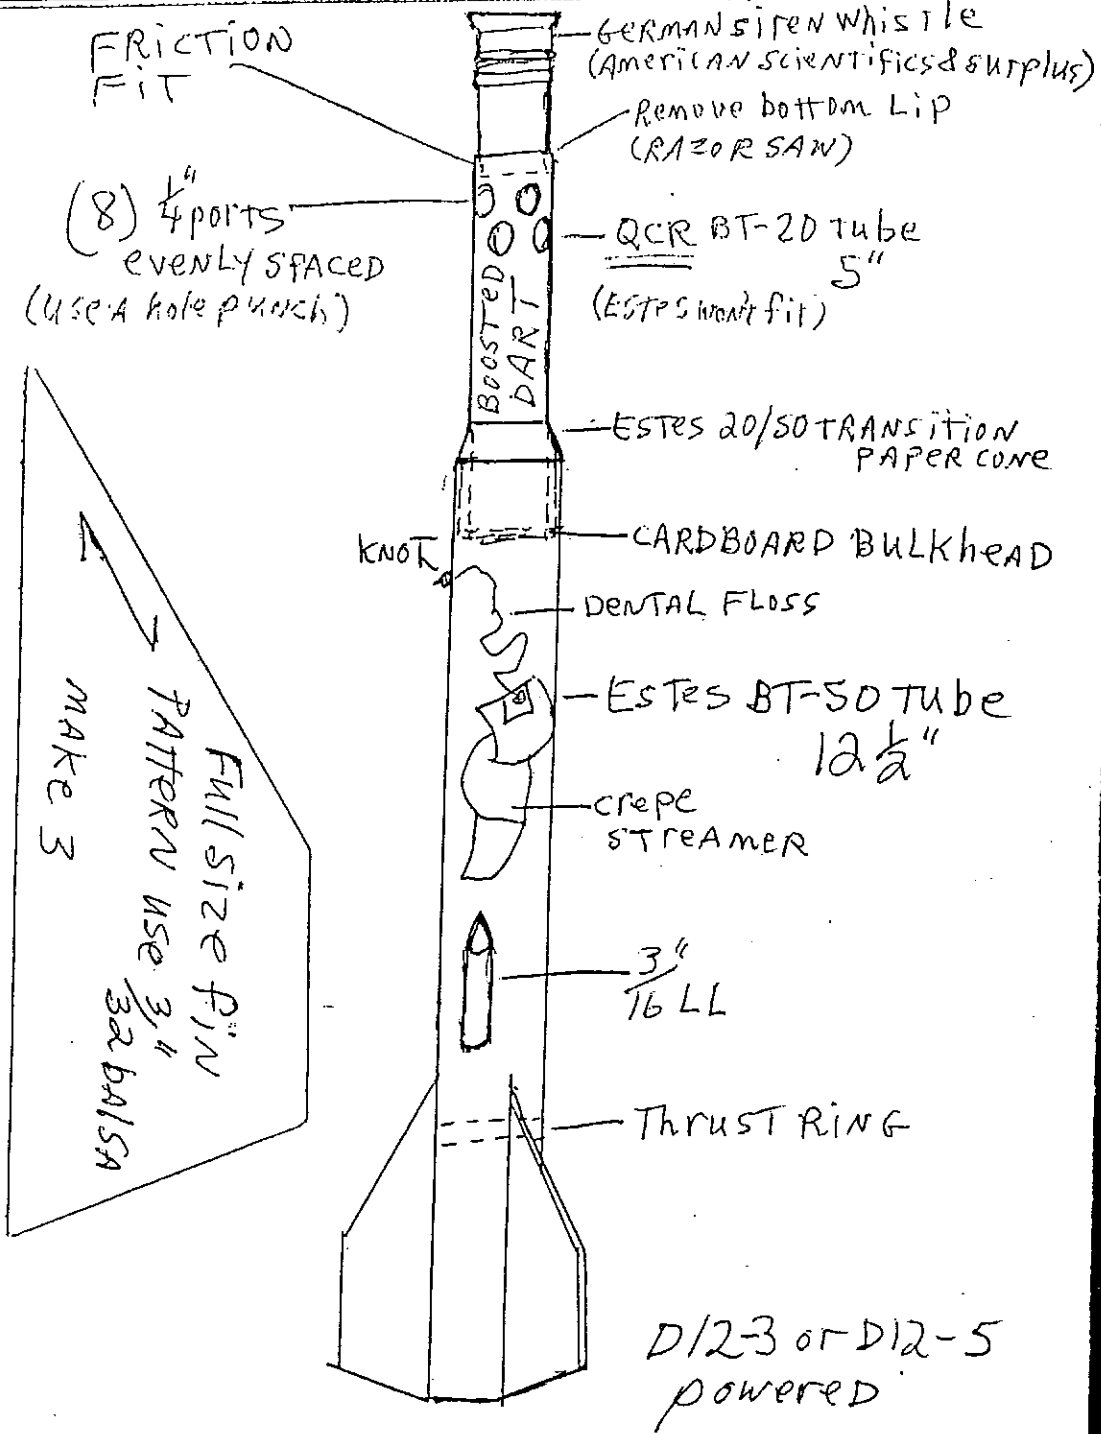 FRICTION
FIT
GERMAN SIREN WHISTLE
(AMERICAN SCIENTIFICS & SURPLUS)
Remove bottom Lip
(RAZOR SAW)
(8) 1/4" ports
evenly spaced
(use A hole punch)
QCR BT-20 Tube
5"
(ESTES won't fit)
BOOSTED
DART
ESTES 20/50 TRANSITION
PAPER CONE
CARDBOARD BULKheAD
KNOT
DENTAL FLOSS
ESTES BT-50 Tube
12 1/2"
crepe
STREAMER
3/16" LL
Thrust RING
Full Size fiN
PATTERN use 3/32" bAlSA
MAKE 3
D12-3 or D12-5
powered